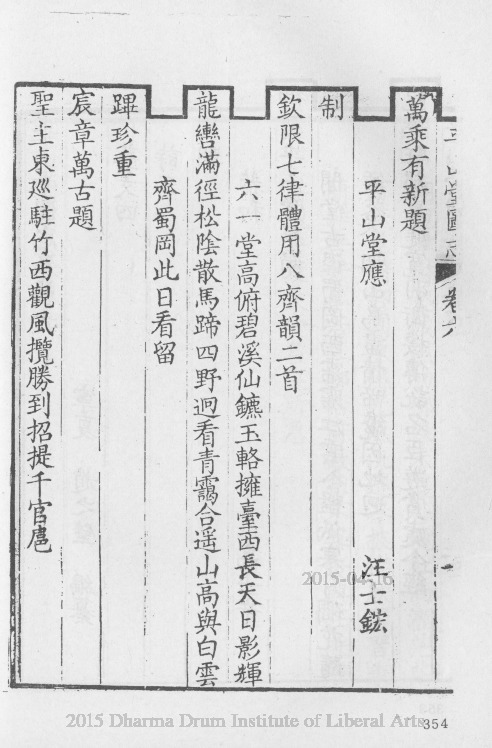 平山堂圖志 卷六
萬乘有新題
平山堂應 汪士鋐
制
欽限七律體用八齊韻二首
六一堂高俯碧溪仙鑣玉輅擁臺西長天日影輝
龍轡滿徑松陰散馬蹄四野迥看青靄合遥山高與白雲
齊蜀岡此日看留
蹕珍重
宸章萬古題
聖主東巡駐竹西觀風攬勝到招提千官扈
2015-04-16
2015 Dharma Drum Institute of Liberal Arts
354